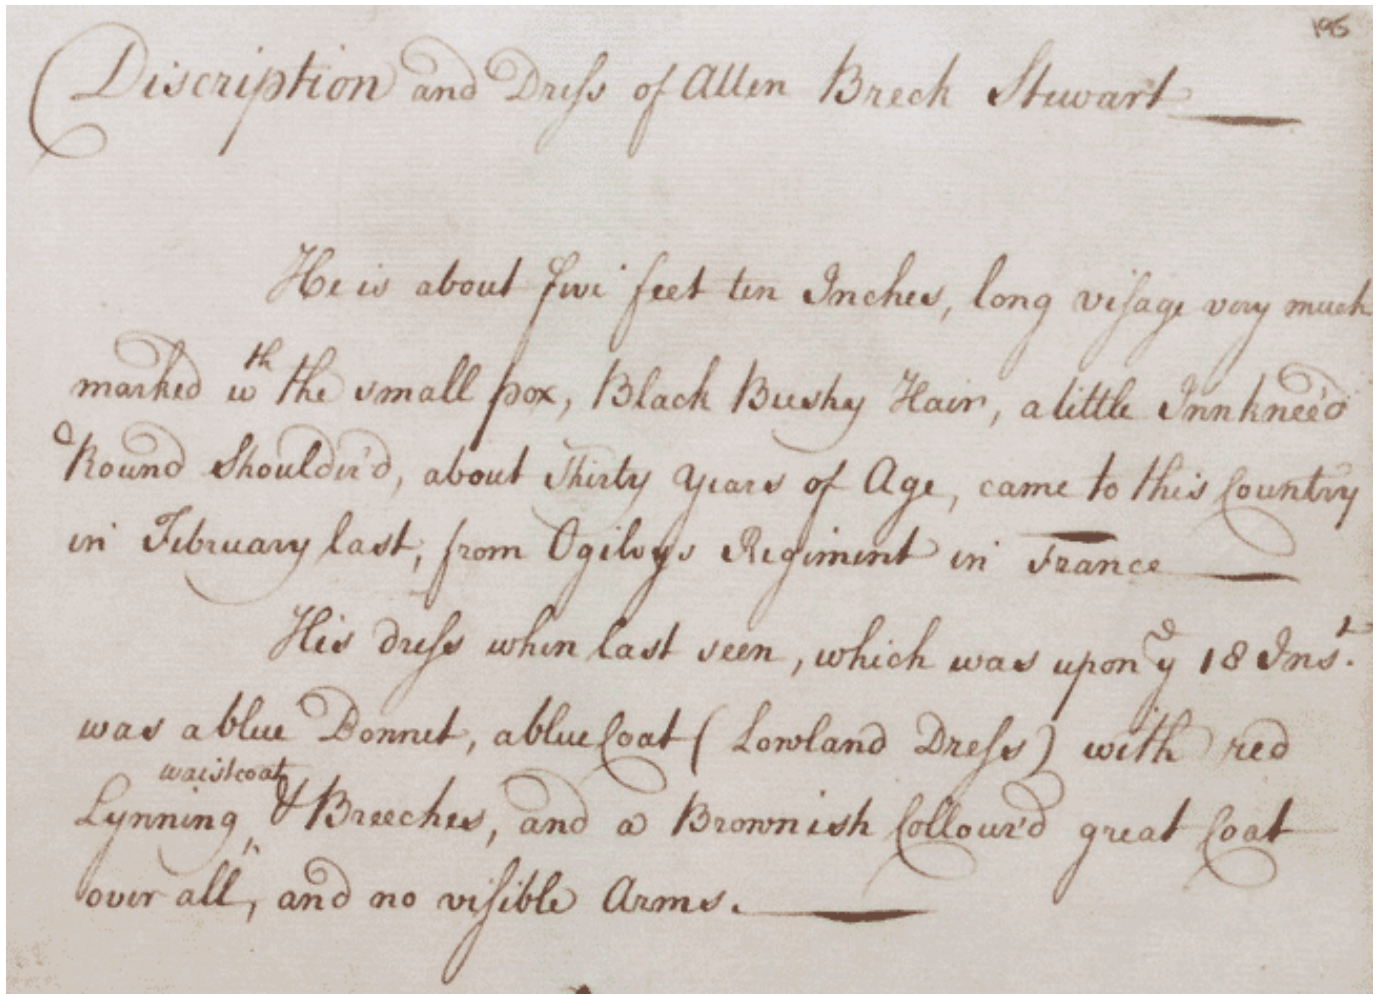 195
Discription and Dress of Allen Breck Stewart
He is about five feet ten Inches, long visage very much
marked wth the small pox, Black Bushy Hair, a little Innkneed
& Round Should'er'd, about thirty years of Age, came to this Country
in February last, from Ogilvys Regiment in France
His dress when last seen, which was upon ye 18 Inst.
was a blue Bonnet, a blue Coat ( Lowland Dress) with red
waistcoat
Lynning, & Breeches, and a Brownish Collour'd great Coat
over all", and no visible Arms.